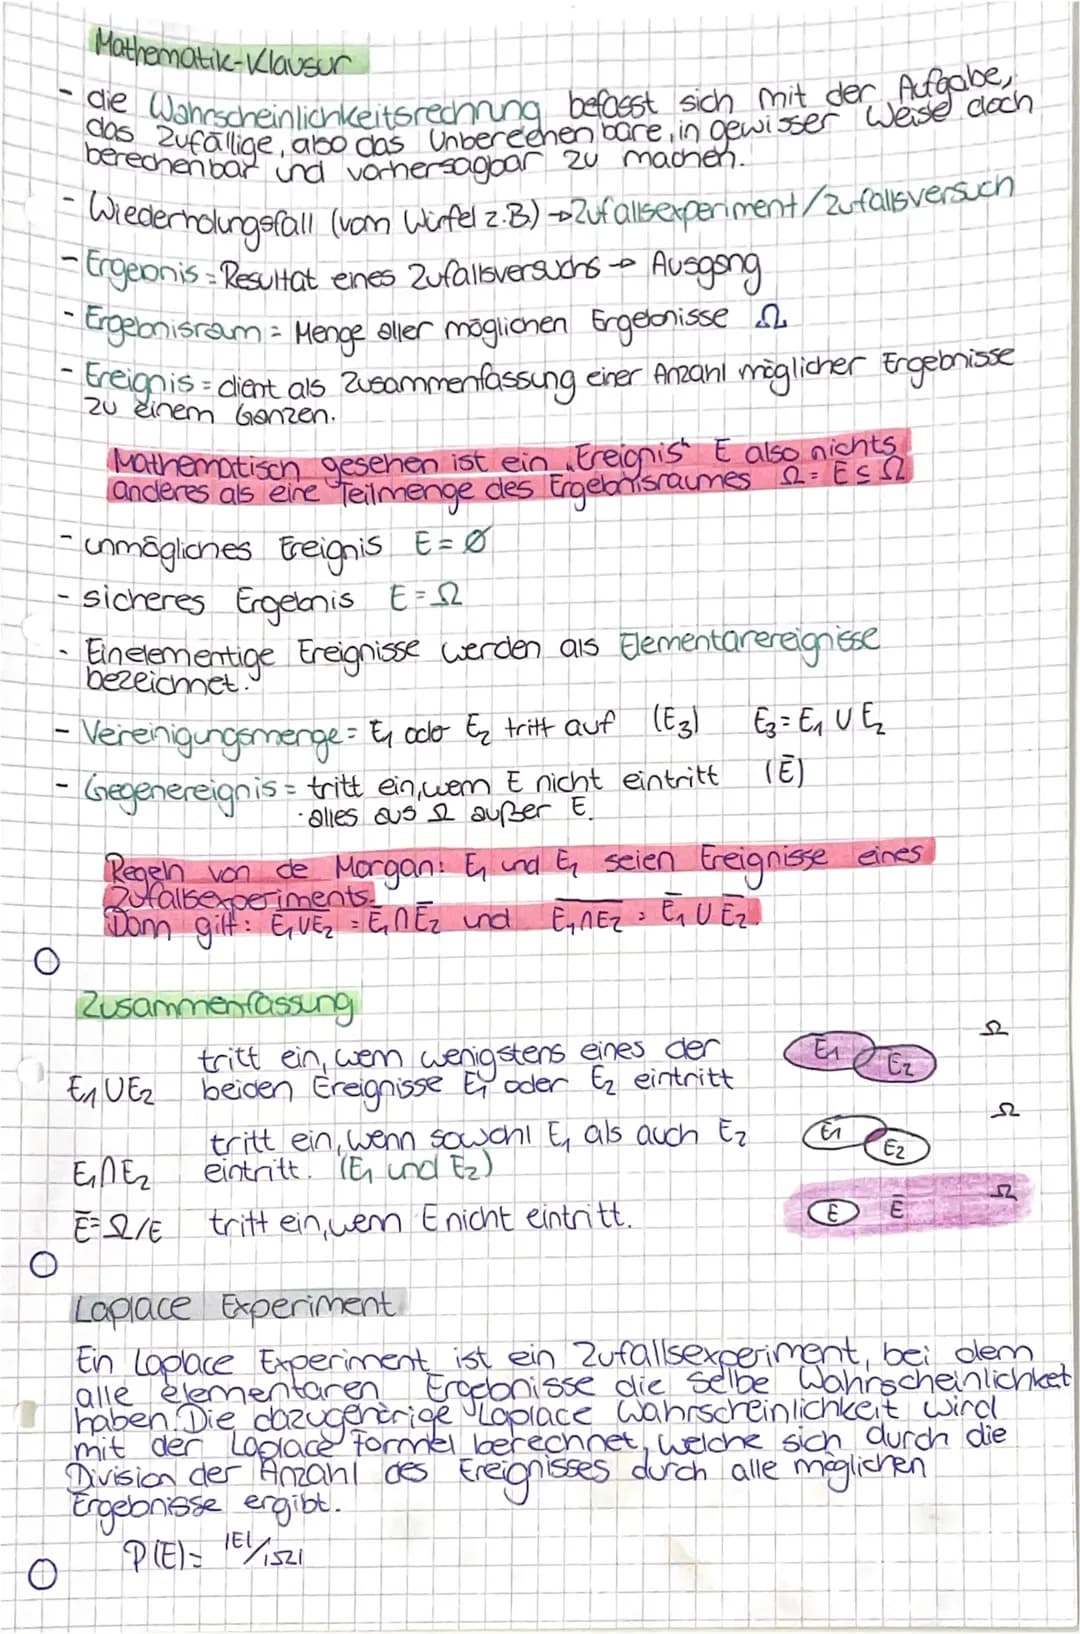 Mathematik-Klausur
- die Wahrscheinlichkeitsrechnung befasst sich mit der Aufgabe,
das Zufällige, also das Unberechenbare, in gewisser Weise doch
berechenbar und vorhersagbar zu machen.
- Wiederholungsfall (vom Würfel z.B) → Zufallsexperiment/Zufallsversuch
- Ergebnis = Resultat eines Zufallsversuchs → Ausgang
- Ergebnisraum = Menge aller möglichen Ergebnisse Ω
- Ereignis = dient als Zusammenfassung einer Anzahl möglicher Ergebnisse
zu einem Ganzen.
Mathematisch gesehen ist ein „Ereignis“ E also nichts
anderes als eine Teilmenge des Ergebnisraumes Ω = E ⊆ Ω
- unmögliches Ereignis E = Ø
- sicheres Ergebnis E = Ω
- Einelementige Ereignisse werden als Elementarereignisse
bezeichnet.
- Vereinigungsmenge = E₁ oder E₂ tritt auf (E₃) E₃ = E₁ ∪ E₂
- Gegenereignis = tritt ein, wenn E nicht eintritt (Ē)
· alles aus Ω außer E.
Regeln von de Morgan: E₁ und E₁ seien Ereignisse eines
Zufallsexperiments.
Dann gilt: E̅₁̅∪̅E̅₂̅ = Ē₁ ∩ Ē₂ und E̅₁̅∩̅E̅₂̅ = Ē₁ ∪ Ē₂.
Zusammenfassung
tritt ein, wenn wenigstens eines der
E₁ ∪ E₂ beiden Ereignisse E₁ oder E₂ eintritt
E₁ E₂ Ω
tritt ein, wenn sowohl E₁ als auch E₂
E₁ ∩ E₂ eintritt. (E₁ und E₂)
E₁ E₂ Ω
Ē = Ω/E tritt ein, wenn E nicht eintritt.
E Ē Ω
Laplace Experiment
Ein Laplace Experiment ist ein Zufallsexperiment, bei dem
alle elementaren Ergebnisse die selbe Wahrscheinlichket
haben. Die dazugehörige Laplace Wahrscheinlichkeit wird
mit der Laplace Formel berechnet, welche sich durch die
Division der Anzahl des Ereignisses durch alle möglichen
Ergebnisse ergibt.
P(E) = |E|/|Ω|